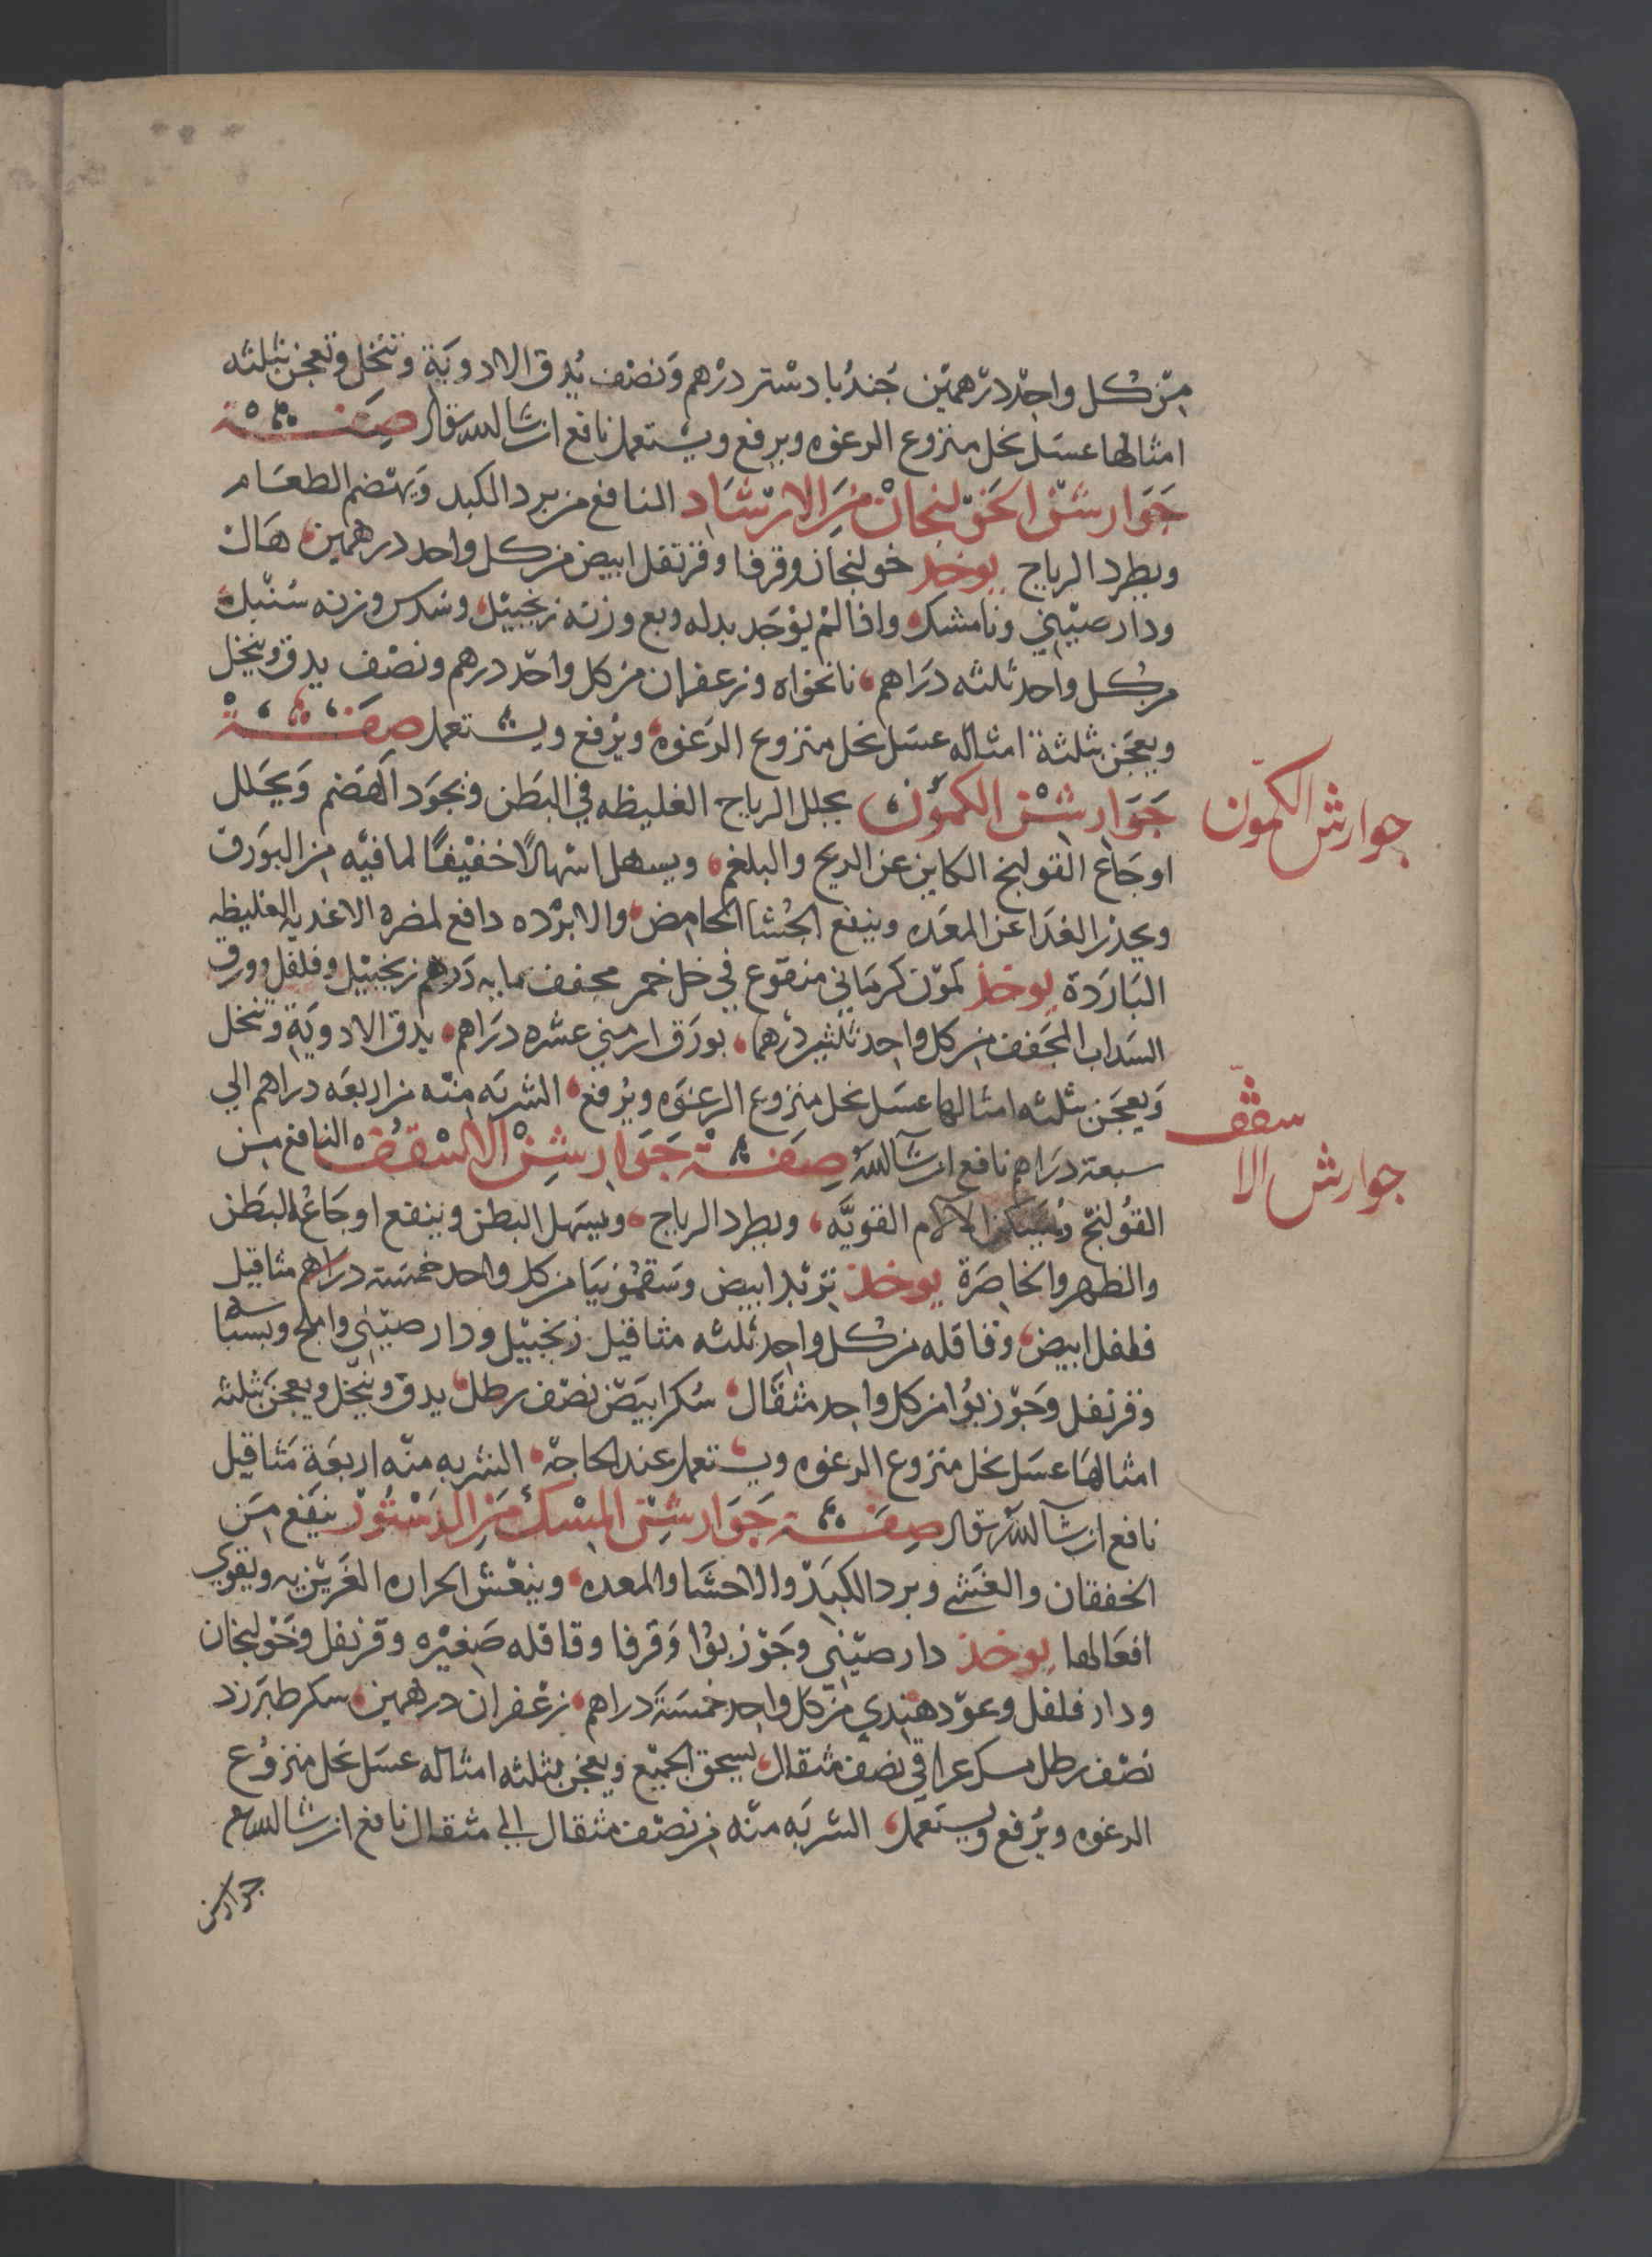 من كل واحد درهمين جندبادستر درهم ونصف يدق الادوية وتنخل وتعجن بثلثه
امثالها عسل نحل منزوع الرغوه ويرفع ويستعمل نافع ان شا الله تعالى صفة
جوارشن الخولنجان من الارشاد النافع من برد الكبد ويهضم الطعام
ويطرد الرياح يوخذ خولنجان وقرفا وقرنفل ابيض من كل واحد درهمين هال
ودار صيني ونامشك واذا لم يوجد بدله وبع وزنه زنجبيل وسدس وزنه سنبل
من كل واحد ثلثه دراهم نانخواه وزعفران من كل واحد درهم ونصف يدق وينخل
ويعجن بثلثة امثاله عسل نحل منزوع الرغوه ويرفع ويستعمل صفة
جوارشن الكمون يحلل الرياح الغليظه في البطن ويجود الهضم ويحلل
جوارش الكمون
اوجاع القولنج الكاين عن الريح والبلغم ويسهل اسهالا خفيفا لما فيه من البورق
ويحذر الغدا عن المعده وينفع الجشا الحامض والابرده دافع لمضره الاغديه الغليظه
الباردة يوخذ كمون كرماني منقوع في خل خمر مجفف مايه درهم زنجبيل وفلفل وورق
السداب المجفف من كل واحد ثلثين درهما بورق ارمني عشره دراهم يدق الادوية وتنخل
ويعجن بثلثه امثالها عسل نحل منزوع الرغوه ويرفع الشربه منه من اربعه دراهم الي
سبعة دراهم نافع ان شا الله صفة جوارشن الاسقف النافع من
جوارش الاسقف
القولنج ويسكن الالام القويه ويطرد الرياح ويسهل البطن وينفع اوجاع البطن
والظهر والخاصرة يوخذ تربد ابيض وسقمونيا من كل واحد خمسة دراهم مثاقيل
فلفل ابيض وقاقله من كل واحد ثلثه مثاقيل زنجبيل ودار صيني واملج وبسباسه
وقرنفل وجوزبوا من كل واحد مثقال سكر ابيض نصف رطل يدق وينخل ويعجن بثلثه
امثالها عسل نحل منزوع الرغوه ويستعمل عند الحاجة الشربه منه اربعة مثاقيل
نافع ان شا الله تعالى صفة جوارشن المسك من الدستور ينفع من
الخفقان والغشي وبرد الكبد والاحشا والمعده وينعش الحراره الغريزيه ويقوي
افعالها يوخذ دار صيني وجوزبوا وقرفا وقاقله صغيره وقرنفل وخولنجان
ودار فلفل وعود هندي من كل واحد خمسة دراهم زعفران درهمين سكر طبرزد
نصف رطل مسك عراقي نصف مثقال يسحق الجميع ويعجن بثلثه امثاله عسل نحل منزوع
الرغوه ويرفع ويستعمل الشربه منه من نصف مثقال الي مثقال نافع ان شا الله تع
جوارشن